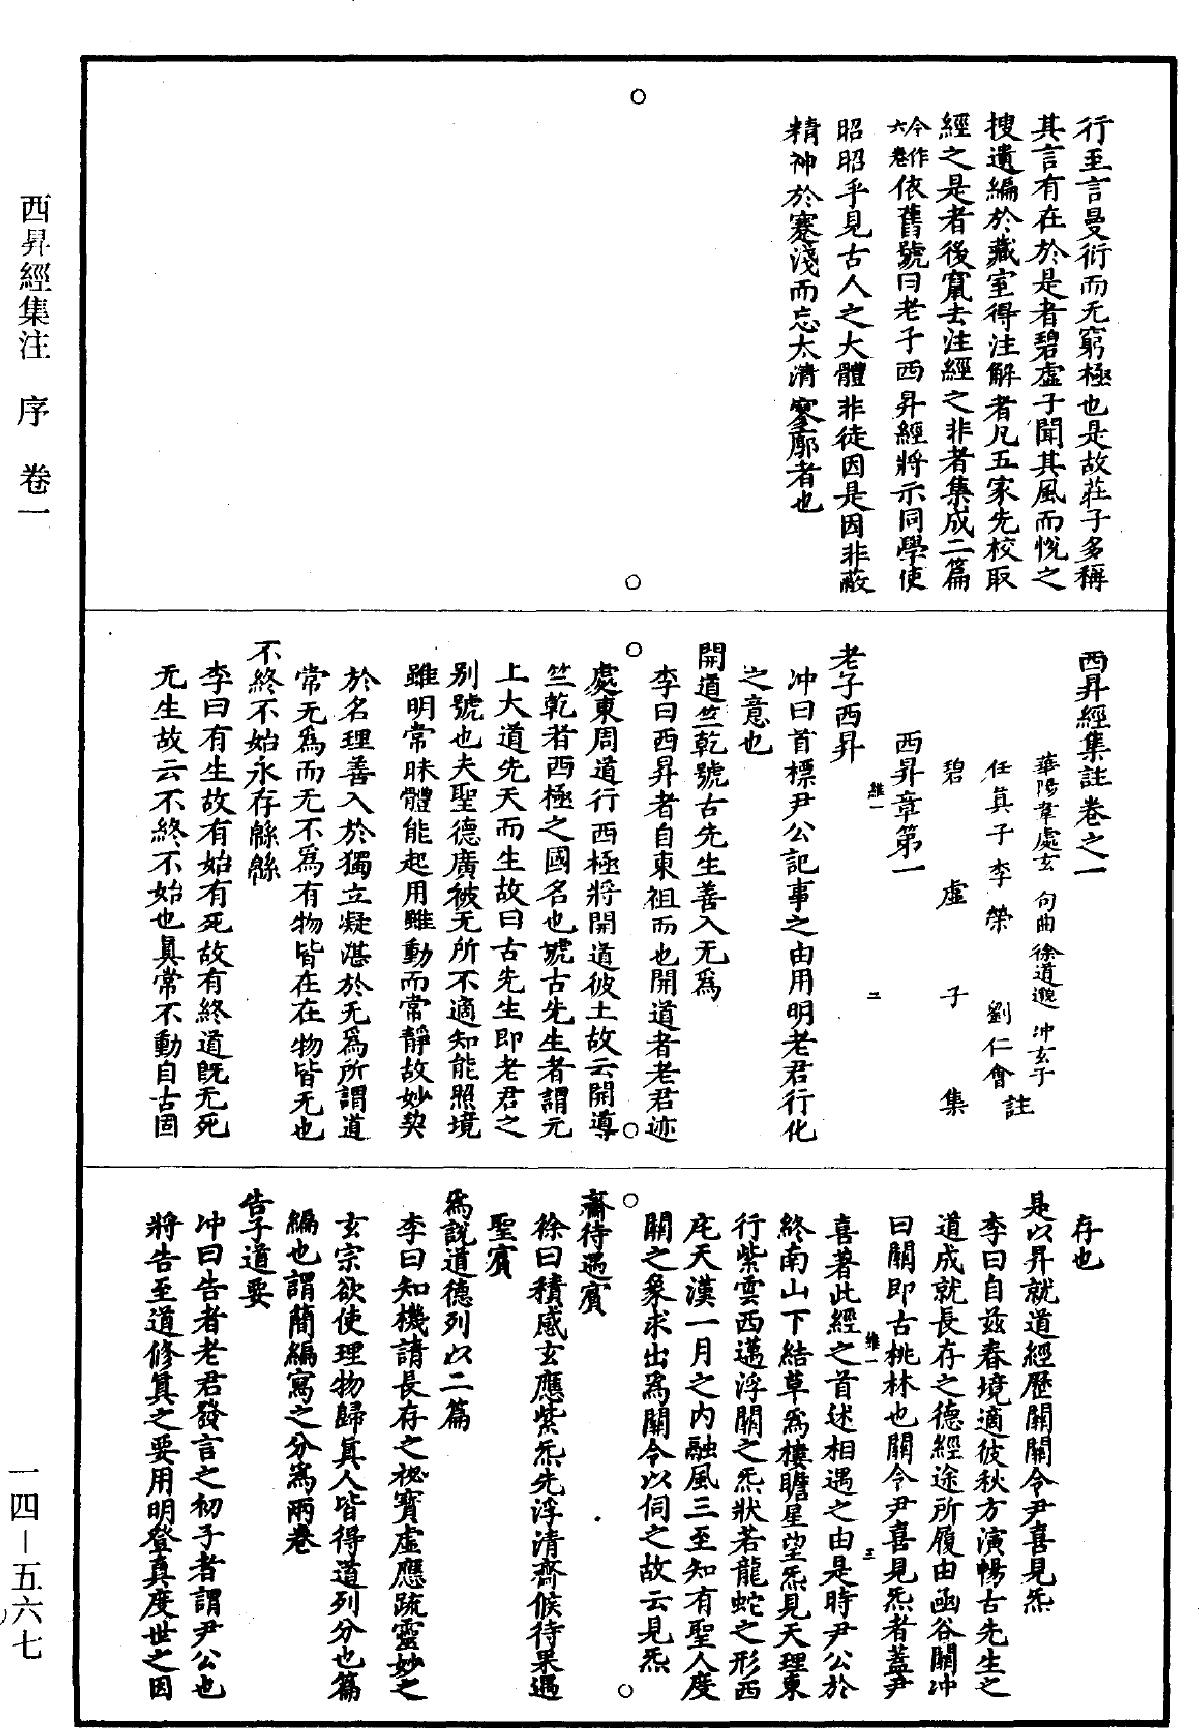 西昇經集注　序　卷一
一四－五六七
行至言曼衍而无窮極也是故莊子多稱
其言有在於是者碧虛子聞其風而悅之
搜遺編於藏室得注解者凡五家先校取
經之是者後竄去注經之非者集成二篇
今作六卷依舊號曰老子西昇經將示同學使
昭昭乎見古人之大體非徒因是因非蔽
精神於蹇淺而忘太清寥廓者也
西昇經集註卷之一
華陽韋處玄　句曲徐道邈　冲玄子
任真子李榮　劉仁會　註
碧虛子集
西昇章第一
維一　二
老子西昇
冲曰首標尹公記事之由用明老君行化
之意也
開道竺乾號古先生善入无爲
李曰西昇者自東徂而也開道者老君迹
處東周道行西極將開道彼土故云開導
竺乾者西極之國名也號古先生者謂元
上大道先天而生故曰古先生即老君之
別號也夫聖德廣被无所不適知能照境
雖明常昧體能起用雖動而常靜故妙契
於名理善入於獨立凝湛於无爲所謂道
常无爲而无不爲有物皆在在物皆无也
不終不始永存緜緜
李曰有生故有始有死故有終道既无死
无生故云不終不始也真常不動自古固
存也
是以昇就道經歷關關令尹喜見炁
李曰自茲春境適彼秋方演暢古先生之
道成就長存之德經途所履由函谷關冲
曰關即古桃林也關令尹喜見炁者蓋尹
維一　三
喜著此經之首述相遇之由是時尹公於
終南山下結草爲樓瞻星望炁見天理東
行紫雲西邁浮關之炁狀若龍蛇之形西
庀天漢一月之內融風三至知有聖人度
關之象求出爲關令以伺之故云見炁
齋待遇賓
徐曰積感玄應紫炁先浮清齋候待果遇
聖賓
爲說道德列以二篇
李曰知機請長存之祕寶虛應疏靈妙之
玄宗欲使理物歸真人皆得道列分也篇
編也謂簡編寫之分爲兩卷
告子道要
冲曰告者老君發言之初子者謂尹公也
將告至道修真之要用明登真度世之因